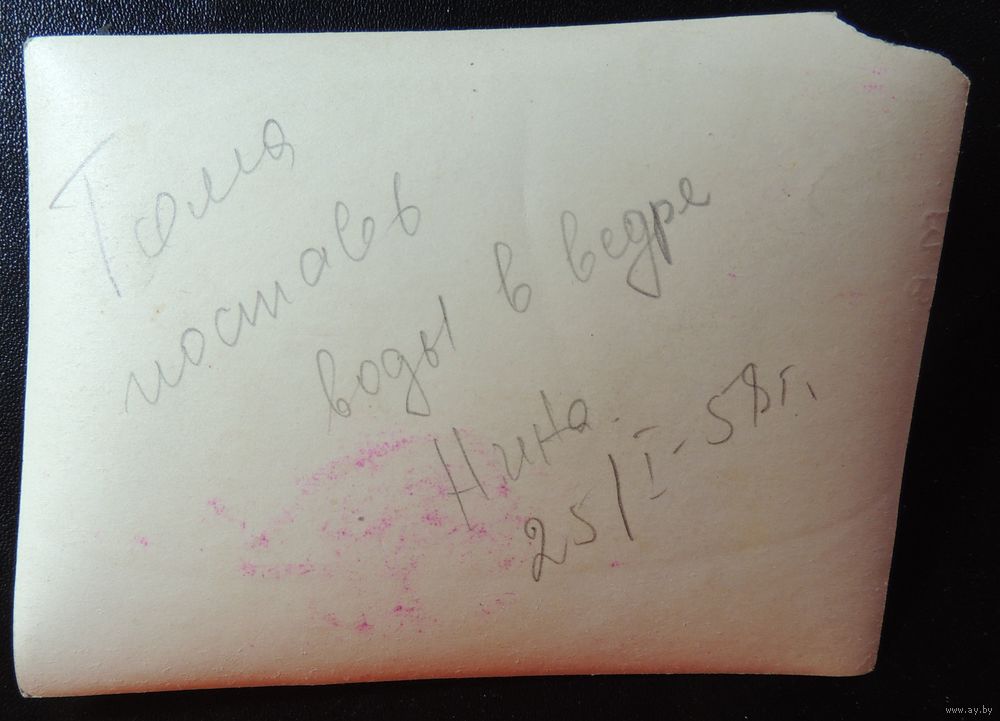 Тома
поставь
воды в ведре
Нина.
25/I-58г.
www.ay.by